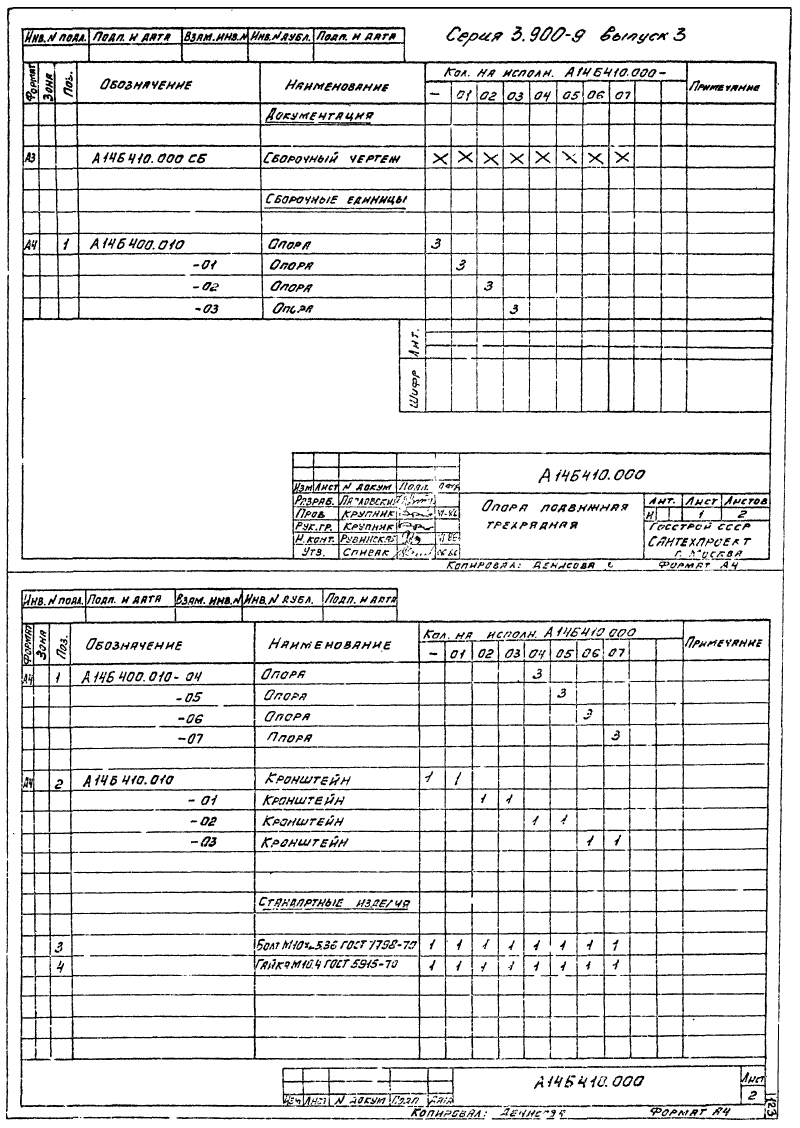 Инв. N подл. Подп. и дата Взам. инв. N Инв. N дубл. Подп. и дата
Серия 3.900-9 Выпуск 3
Формат Зона Поз. Обозначение Наименование Кол. на исполн. А14Б410.000- Примечание
- 01 02 03 04 05 06 07
Документация
А3 А14Б410.000 СБ Сборочный чертеж X X X X X X X X
Сборочные единицы
А4 1 А14Б400.010 Опора 3
-01 Опора 3
-02 Опора 3
-03 Опора 3
Лит.
Шифр
А14Б410.000
Изм Лист N докум Подп. Дата
Разраб.
Пров Крупник
Рук.гр. Крупник
Н.конт. Рубинская
Утв. Спивак
Опора подвижная
трехрядная
Лит. Лист Листов
И 1 2
Госстрой СССР
Сантехпроект
г. Москва
Копировал: Денисова Формат А4
Инв. N подл. Подп. и дата Взам. инв. N Инв. N дубл. Подп. и дата
Формат Зона Поз. Обозначение Наименование Кол. на исполн. А14Б410.000 Примечание
- 01 02 03 04 05 06 07
А4 1 А14Б400.010-04 Опора 3
-05 Опора 3
-06 Опора 3
-07 Опора 3
А4 2 А14Б410.010 Кронштейн 1 1
-01 Кронштейн 1 1
-02 Кронштейн 1 1
-03 Кронштейн 1 1
Стандартные изделия
3 Болт ГОСТ 7798-70 1 1 1 1 1 1 1 1
4 Гайка М10.4 ГОСТ 5915-70 1 1 1 1 1 1 1 1
А14Б410.000
Лист
2
Изм Лист N докум Подп Дата
Копировал: Денисова Формат А4
123